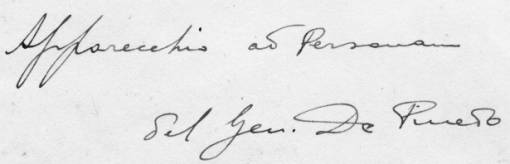 Apparecchio ad Personam
del Gen. De Pinedo